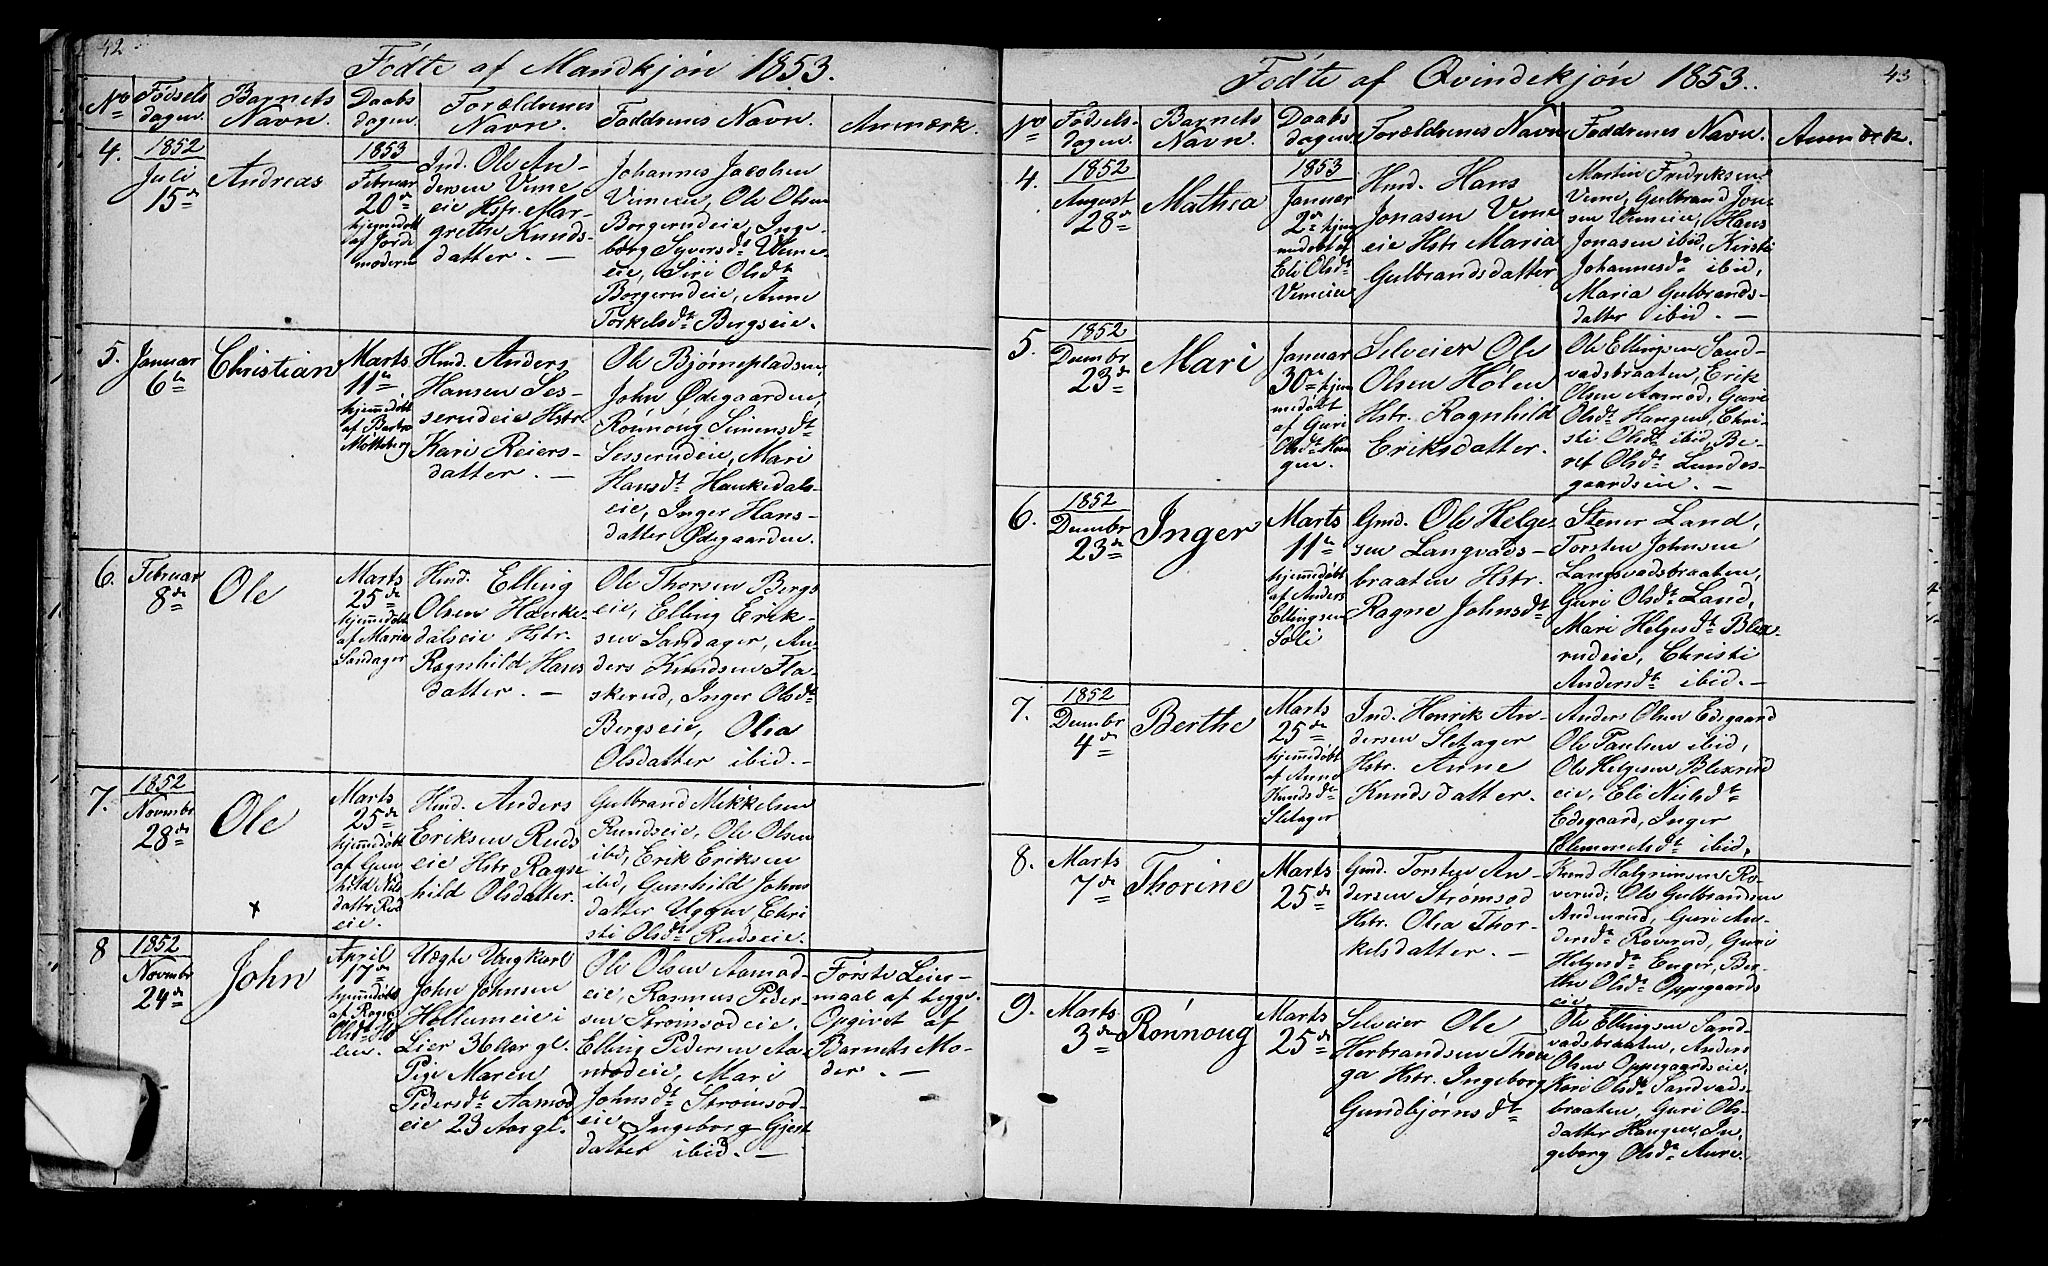 42
Fødte af Mandkjøn 1853.
No
Fødsels
dagen.
Barnets
Navn.
Daabs
dagen.
Forældrenes
Navn.
Faddrenes Navn.
Anmærk.
4.
1852
Juli
15de
Andreas
1853
Februar
20de
hjemedøbt
af Jorde
moderen
Ind. Ole An-
dersen Veme
eie Hstr. Mar-
grethe Knuds-
datter. —
Johannes Jacobsen
Vemeie, Ole Olsen
Borgerudeie, Inge-
borg Syversdt. Veme-
eie, Siri Olsdt.
Borgerudeie, Anne
Torkelsdt. Bergseie.
5.
Januar
6te
Christian
Marts
11te
hjemedøbt
af Barbro
Mølteberg
Hmd. Anders
Hansen Ses-
serudeie Hstr.
Kari Reiers-
datter. —
Ole Bjørnepladsen,
John Ødegaarden,
Rønnoug Simensdt.
Sesserudeie, Mari
Hansdt. Haukedals-
eie, Inger Hans-
datter Ødegaarden.
6.
Februar
8de
Ole
Marts
25de
hjemedøbt
af Maria
Sandager
Hmd. Elling
Olsen Hauke-
dalseie Hstr.
Ragnhild Hans
datter. —
Ole Thorsen Bergs
eie, Elling Erik-
sen Sandager, An-
ders Knudsen Fla-
skerud, Inger Olsdt.
Bergseie, Olea
Olsdatter ibid. —
7.
1852
Novmbr
28de
Ole
Marts
25de
hjemedøbt
af Gun
hild Nils
datter Rud
eie.
Hmd. Anders
Eriksen Ruds
eie Hstr. Ragn
hild Olsdatter.
Gulbrand Mikkelsen
Rundseie, Ole Olsen
ibid, Erik Eriksen
ibid, Gunhild Johns
datter Uggen Chri
sti Olsdt. Rudseie.
8
1852
Novmbr
24de
John
April
17de
hjemedøbt
af Ragne
Olsdt. Ho
leien.
Uægte Ungkarl
John Johnsen
Hollumeie i
Lier 36 Aar gl.
Pige Maren
Pedersdt. Aamod
eie 23 Aar gl.
Ole Olsen Aamod-
eie, Rasmus Peder
sen Strømsodeie.
Elling Pedersen Aa-
modeie, Mari
Johnsdt. Strømsod-
eie, Ingeborg Gjest
datter ibid. —
Første Leier-
maal af begge.
Opgivet af
Barnets Mo-
der. —
43
Fødte af Qvindekjøn 1853.
No
Fødsels-
dagen.
Barnets
Navn.
Daabs
dagen.
Forældrenes Navn
Faddrenes Navn.
Anmærk.
4.
1852
August
28de
Mathea
1853
Januar
2den hjem
medøbt af
Eli Olsdt.
Vemeien
Hmd. Hans
Jonasen Veme
eie Hstr Maria
Gulbrandsdatter
Martin Fredriksen
Veme, Gulbrand Jon
sen Vemeie, Hans
Jonasen ibid, Kirsti
Johannesdt. ibid,
Maria Gulbrands-
datter ibid. —
5.
1852
Decmbr
23de
Mari
Januar
30te hjem
medøbt
af Guri
Olsdt. Hau
gen.
Selveier Ole
Olsen Holen
Hstr. Ragnhild
Eriksdatter.
Ole Ellingsen Sand-
vadsbraaten, Erik
Olsen Aamod, Guri
Olsdt. Haugen, Chri-
sti Olsdt. ibid, Be-
ret Olsdt. Lundes-
gaardseie. —
6.
1852
Decmbr
23de
Inger
Marts
11te
hjemedøbt
af Anders
Ellingsen
Soli
Gmd. Ole Helge
sen Langvads-
braaten Hstr.
Ragne Johnsdt.
Stener Land,
Torsten Johnsen
Langvadsbraaten,
Guri Olsdt. Land,
Mari Helgesdt. Blex-
rudeie, Christi
Andersdt. ibid. —
7.
1852
Decmbr
4de
Berthe
Marts
25de
hjemedøbt
af Anne
Knudsdt.
Sletager
Ind. Henrik An-
dersen Sletager
Hstr. Anne
Knudsdatter.
Anders Olsen Edsgaard
Ole Paulsen ibid,
Ole Helgesen Blexrud
eie, Eli Nielsdt.
Edsgaard, Inger
Clemmetsdt. ibid.
8.
Marts
7de
Thorine
Marts
25de
Gmd. Torsten An-
dersen Strømsod
Hstr. Olea Thor-
kelsdatter. —
Knud Halgrimsen Ro-
verud, Ole Gulbrandsen
Anderud, Guri An-
dersdt. Roverud, Guri
Helgesdt. Enger, Ber-
the Olsdt. Oppegaards
eie
9.
Marts
3de
Rønnoug
Marts
25de
Selveier Ole
Herbrandsen Thon
ga Hstr. Ingeborg
Gundbjørnsdt.
Ole Ellingsen Sand-
vadsbraaten, Anders
Olsen Oppegaardseie,
Kari Olsdt. Sandvads-
braaten, Guri Ols-
datter Haugen, In-
geborg Olsdt. Aure.